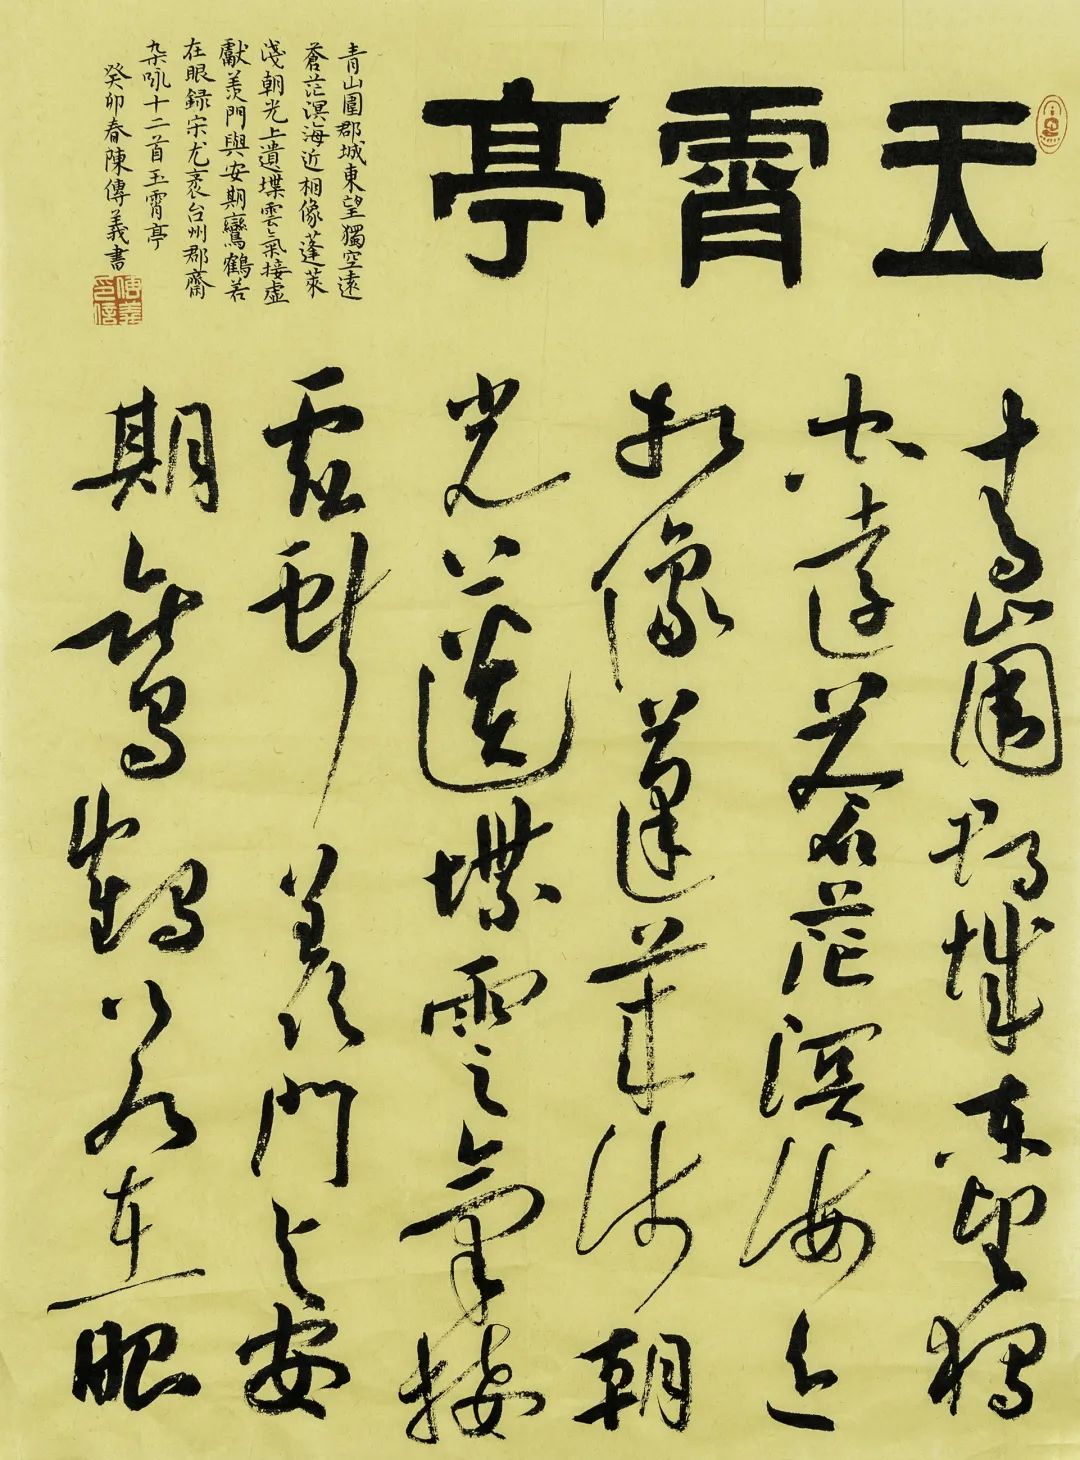 玉霄亭
青山圍郡城東望獨
空遠蒼茫溟海近
相像蓬萊淺朝
光上遺堞雲氣接
虛獻羨門與安
期鸞鶴若在眼
青山圍郡城東望獨空遠
蒼茫溟海近相像蓬萊
淺朝光上遺堞雲氣接虛
獻羨門與安期鸞鶴若
在眼録宋尤袤台州郡齋
杂咏十二首玉霄亭
癸卯春陳傳義書
傳義印信